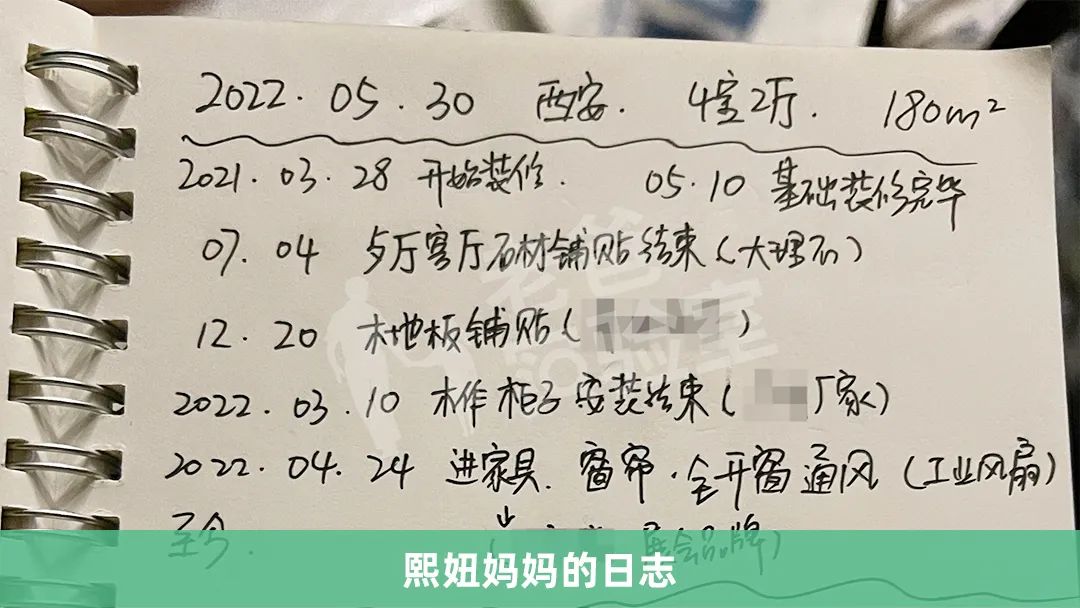 2022.05.30 西安. 4室2厅. 180m²
2021.03.28 开始装修. 05.10 基础装修完毕
07.04 歺厅客厅石材铺贴结束(大理石)
12.20 木地板铺贴( )
2022.03.10 木作柜子安装结束( 厂家)
2022.04.24 进家具. 窗帘.全开窗通风(工业风扇)
至今. ( 品牌)
老爸
实验室
熙妞妈妈的日志